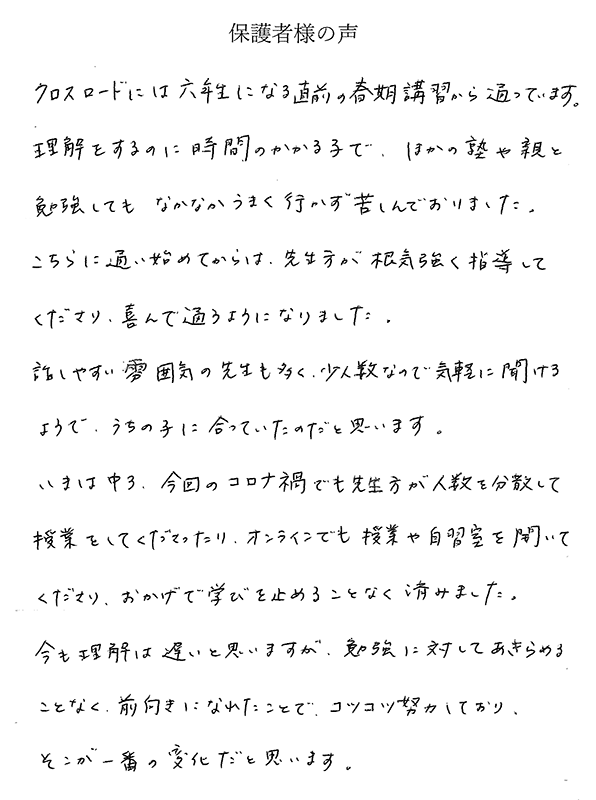 保護者様の声
クロスロードには六年生になる直前の春期講習から通っています。
理解をするのに時間のかかる子で、ほかの塾や親と
勉強しても なかなかうまく行かず苦しんでおりました。
こちらに通い始めてからは、先生方が根気強く指導して
くださり、喜んで通うようになりました。
話しやすい雰囲気の先生も多く、少人数なので気軽に聞ける
ようで、うちの子に合っていたのだと思います。
いまは中3、今回のコロナ禍でも先生方が人数を分散して
授業をしてくださったり、オンラインでも授業や自習室を開いて
くださり、おかげで学びを止めることなく済みました。
今も理解は遅いと思いますが、勉強に対してあきらめる
ことなく、前向きになれたことで、コツコツ努力しており、
そこが一番の変化だと思います。